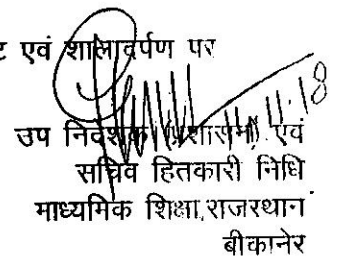 ट एवं शालादर्पण पर
11.11.18
उप निदेशक (प्रशासन) एवं
सचिव हितकारी निधि
माध्यमिक शिक्षा,राजस्थान
बीकानेर